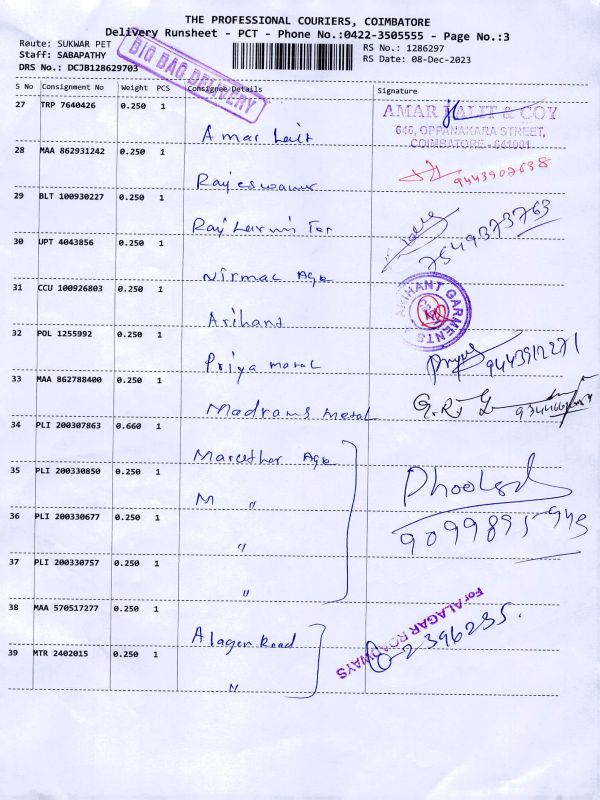 THE PROFESSIONAL COURIERS, COIMBATORE
Delivery Runsheet - PCT - Phone No.:0422-3505555 - Page No.:3
Route: SUKWAR PET
Staff: SABAPATHY
DRS No.: DCJB128629703
RS No.: 1286297
RS Date: 08-Dec-2023
BIG BAG DELIVERY
S No Consignment No Weight PCS Consignee Details Signature
27 TRP 7640426 0.250 1
Amar Lait
AMAR LALIT & COY
646, OPPANAKARA STREET,
COIMBATORE - 641001
28 MAA 862931242 0.250 1
Rajeswawr
9443907638
29 BLT 100930227 0.250 1
Raj Laxmi Ter
7549373763
30 UPT 4043856 0.250 1
Nirmal Age
31 CCU 100926803 0.250 1
Arihant
ARIHANT GARMENTS
32 POL 1255992 0.250 1
Priya maral
Priya 9443912271
33 MAA 862788400 0.250 1
Madrams Metal
G.R.
34 PLI 200307863 0.660 1
Maruthar Age
35 PLI 200330850 0.250 1
M "
Dhoolsd
9099895943
36 PLI 200330677 0.250 1
"
37 PLI 200330757 0.250 1
"
38 MAA 570517277 0.250 1
Alager Road
For ALAGAR ROADWAYS
2396235.
39 MTR 2402015 0.250 1
"